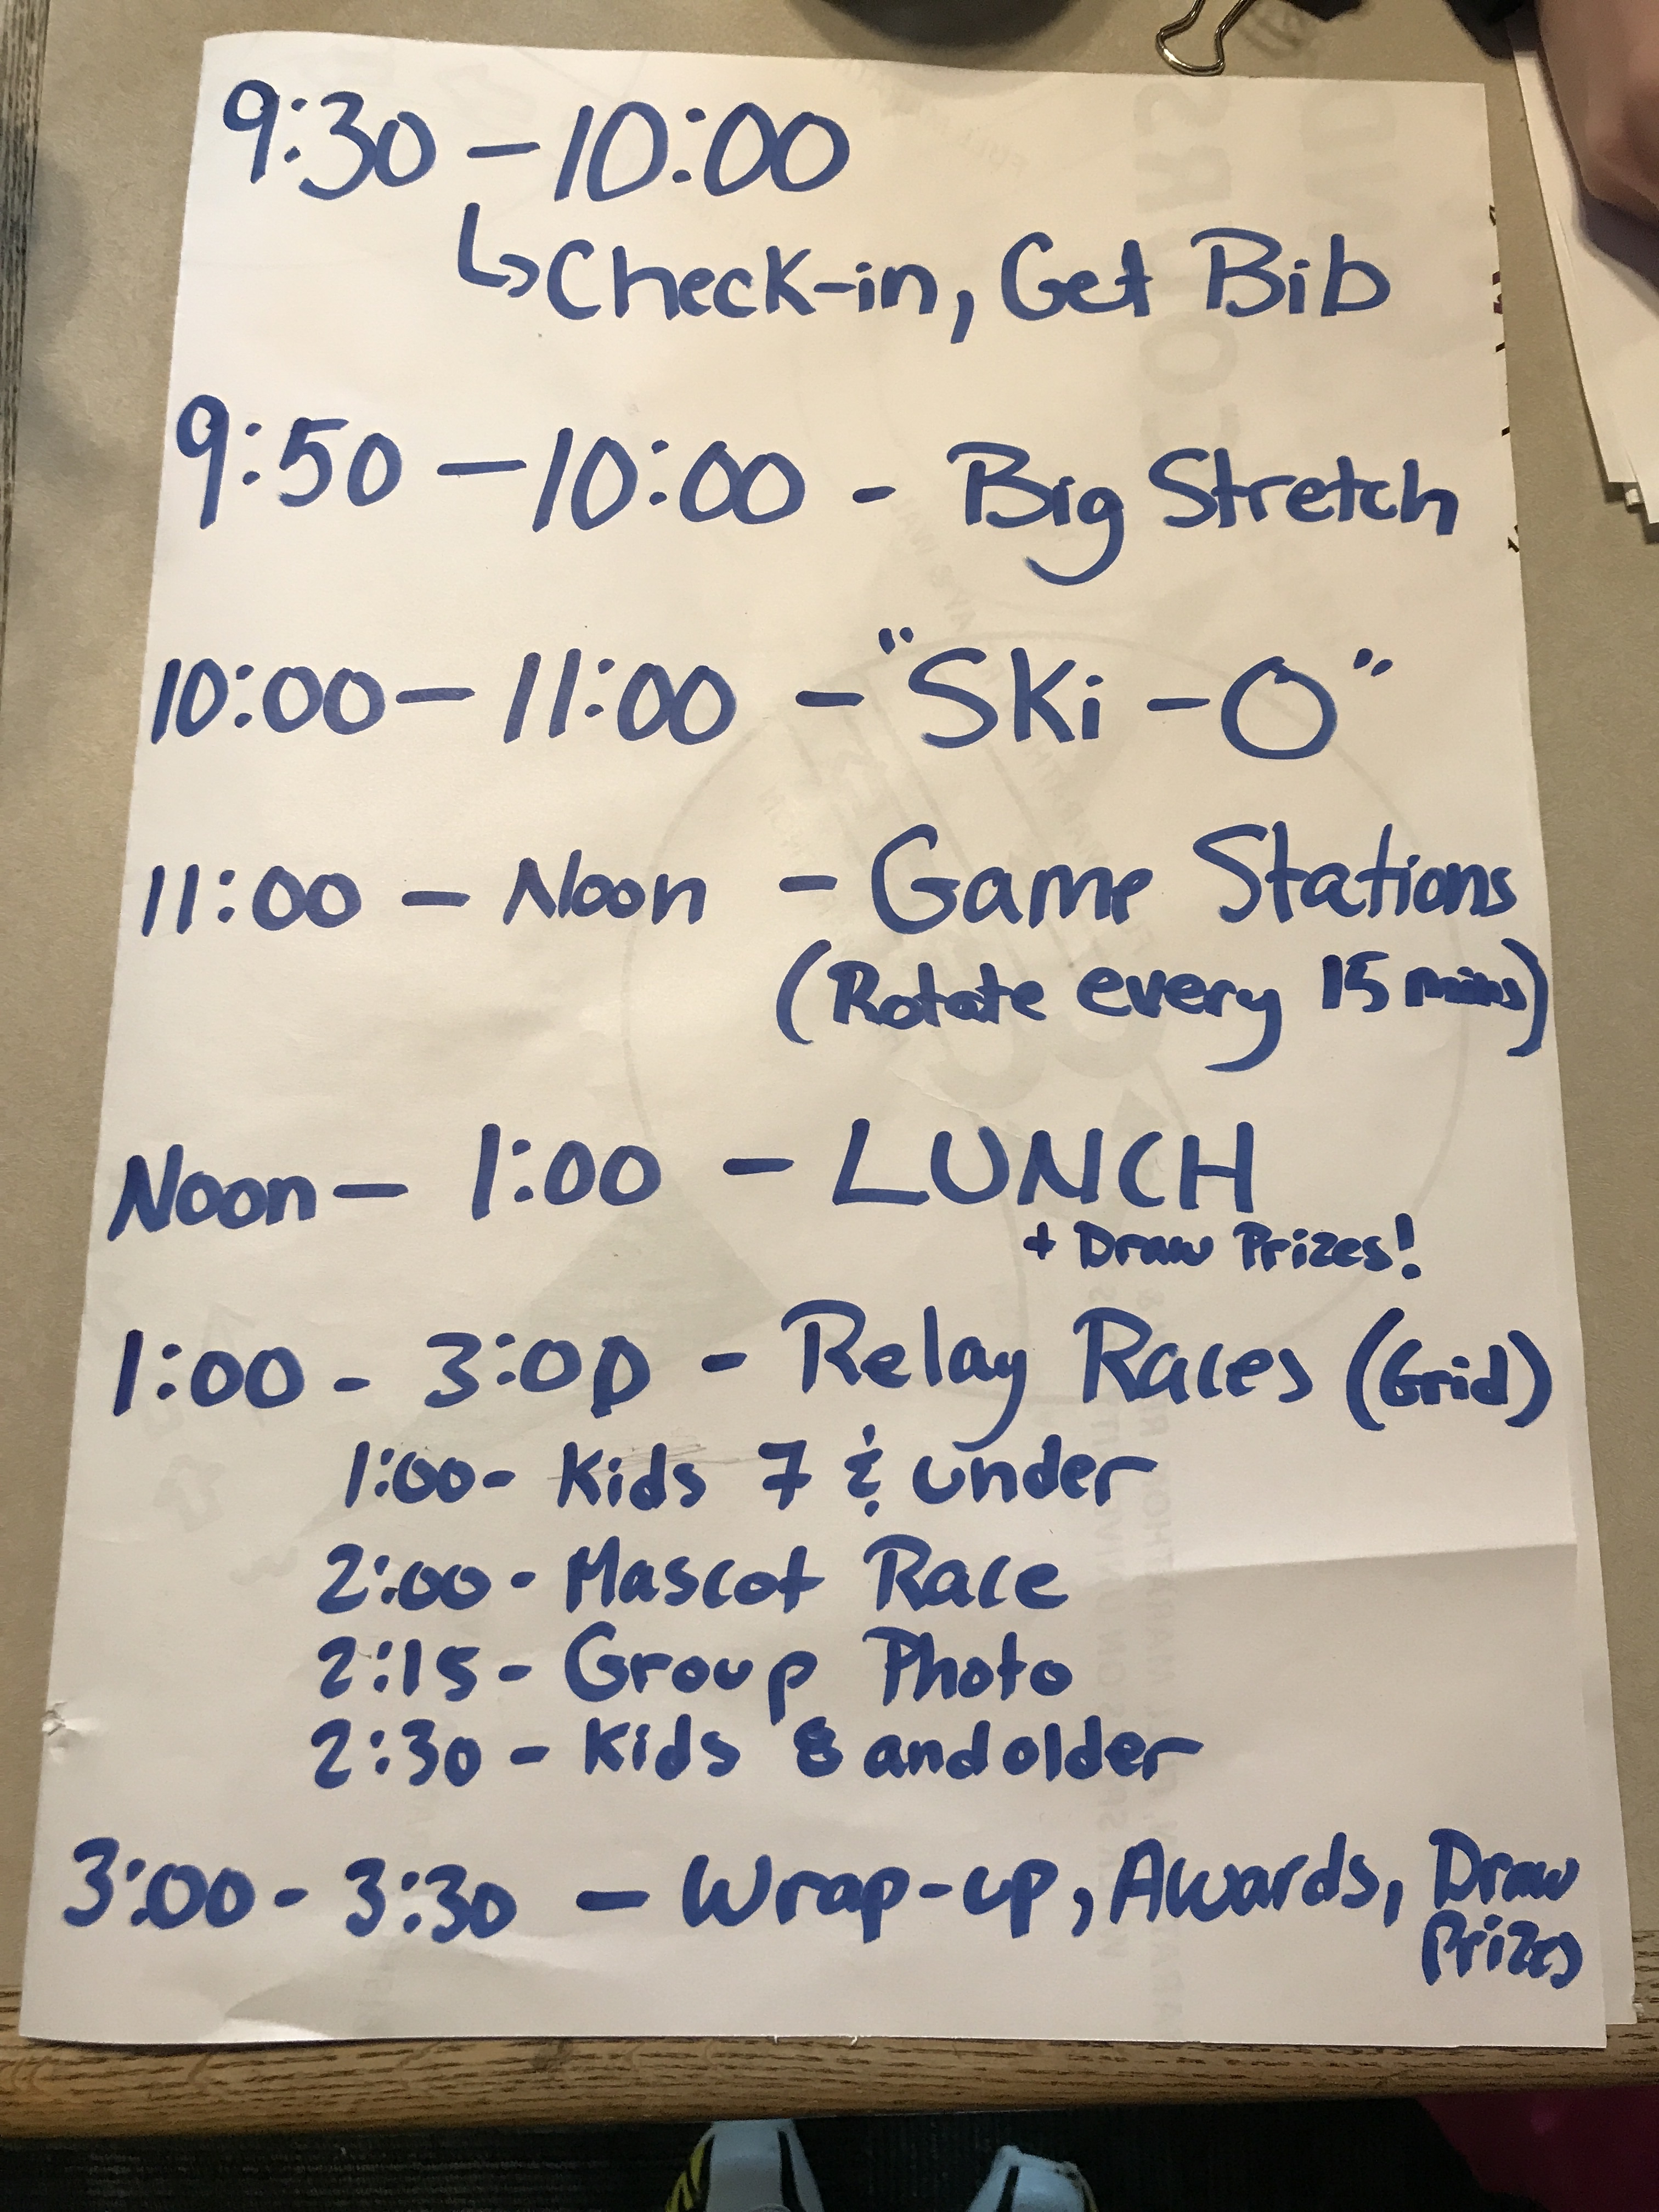 9:30 - 10:00
↳ Check-in, Get Bib
9:50 - 10:00 - Big Stretch
10:00 - 11:00 - "Ski - O"
11:00 - Noon - Game Stations
(Rotate every 15 mins)
Noon - 1:00 - LUNCH
+ Draw Prizes!
1:00 - 3:00 - Relay Races (Grid)
1:00 - Kids 7 & under
2:00 - Mascot Race
2:15 - Group Photo
2:30 - Kids 8 and older
3:00 - 3:30 - Wrap-up, Awards, Draw
Prizes